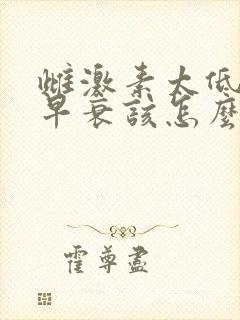 雌激素太低
早衰该怎麼
霍尊盡